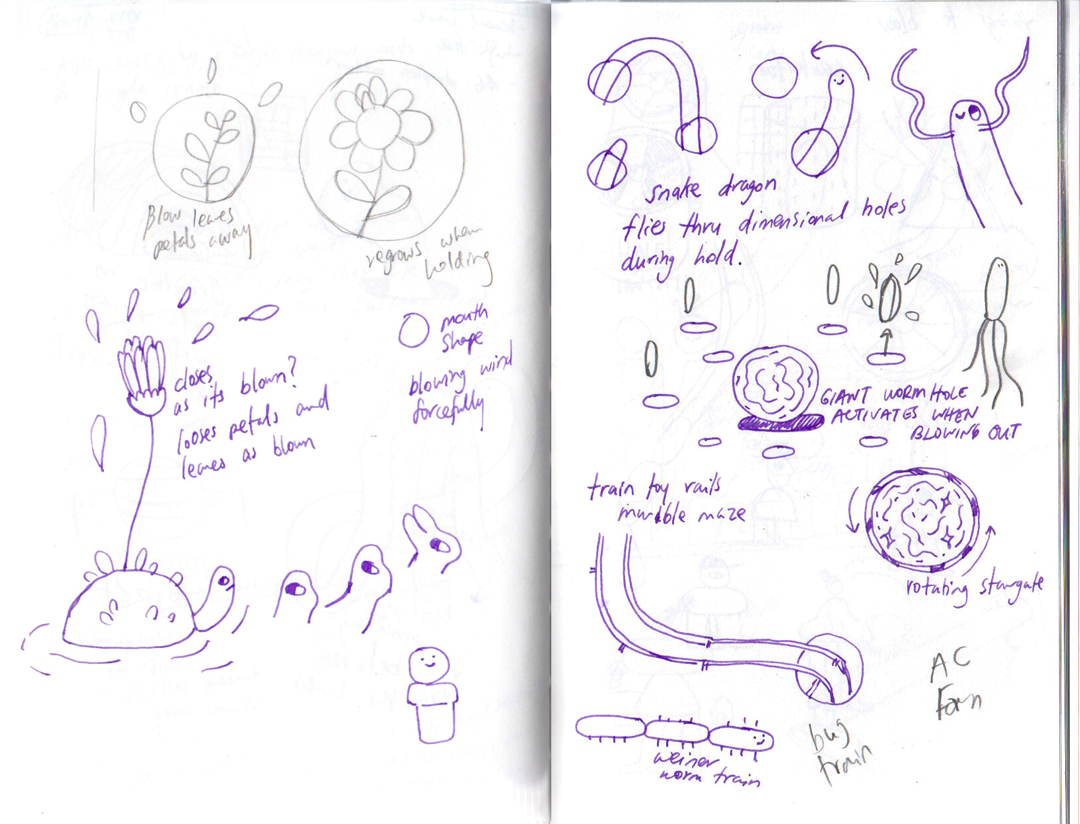 Blow leaves
petals away
regrows when
holding
closes
as its blown?
looses petals and
leaves as blown
mouth
shape
blowing wind
forcefully
snake dragon
flies thru dimensional holes
during hold.
GIANT WORM HOLE
ACTIVATES WHEN
BLOWING OUT
train toy rails
marble maze
rotating stargate
AC
bug
train
weiner
worm train